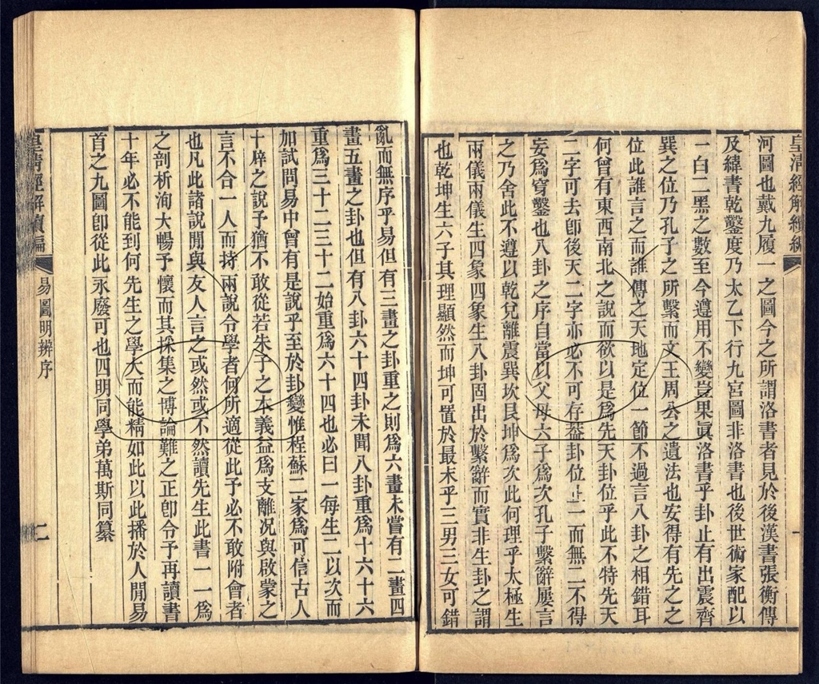 皇清經解續編
河圖也戴九履一之圖今之所謂洛書者見於後漢書張衡傳
及緯書乾鑿度乃太乙下行九宮圖非洛書也後世術家配以
一白二黑之數至今遵用不變豈果眞洛書乎卦止有出震齊
巽之位乃孔子之所繫而文王周公之遺法也安得有先之之
位此誰言之而誰傳之天地定位一節不過言八卦之相錯耳
何曾有東西南北之說而欲以是爲先天卦位乎此不特先天
二字可去卽後天二字亦必不可存葢卦位止一而無二不得
妄爲穿鑿也八卦之序自當以父母六子爲次孔子繫辭屢言
之乃舍此不遵以乾兌離震巽坎艮坤爲次此何理乎太極生
兩儀兩儀生四象四象生八卦固出於繫辭而實非生卦之謂
也乾坤生六子其理顯然而坤可置於最末乎三男三女可錯
亂而無序乎易但有三畫之卦重之則爲六畫未嘗有二畫四
畫五畫之卦也但有八卦六十四卦未聞八卦重爲十六十六
重爲三十二三十二始重爲六十四也必曰一每生二以次而
加試問易中曾有是說乎至於卦變惟程蘇二家爲可信古人
十辟之說予猶不敢從若朱子之本義益爲支離况與啟蒙之
言不合一人而持兩說令學者何所適從此予必不敢附會者
也凡此諸說閒與友人言之或然或不然讀先生此書一一爲
之剖析洵大暢予懷而其採集之博論難之正卽令予再讀書
十年必不能到何先生之學大而能精如此以此播於人閒易
首之九圖卽從此永廢可也四明同學弟萬斯同纂
皇清經解續編
易圖明辨序
二